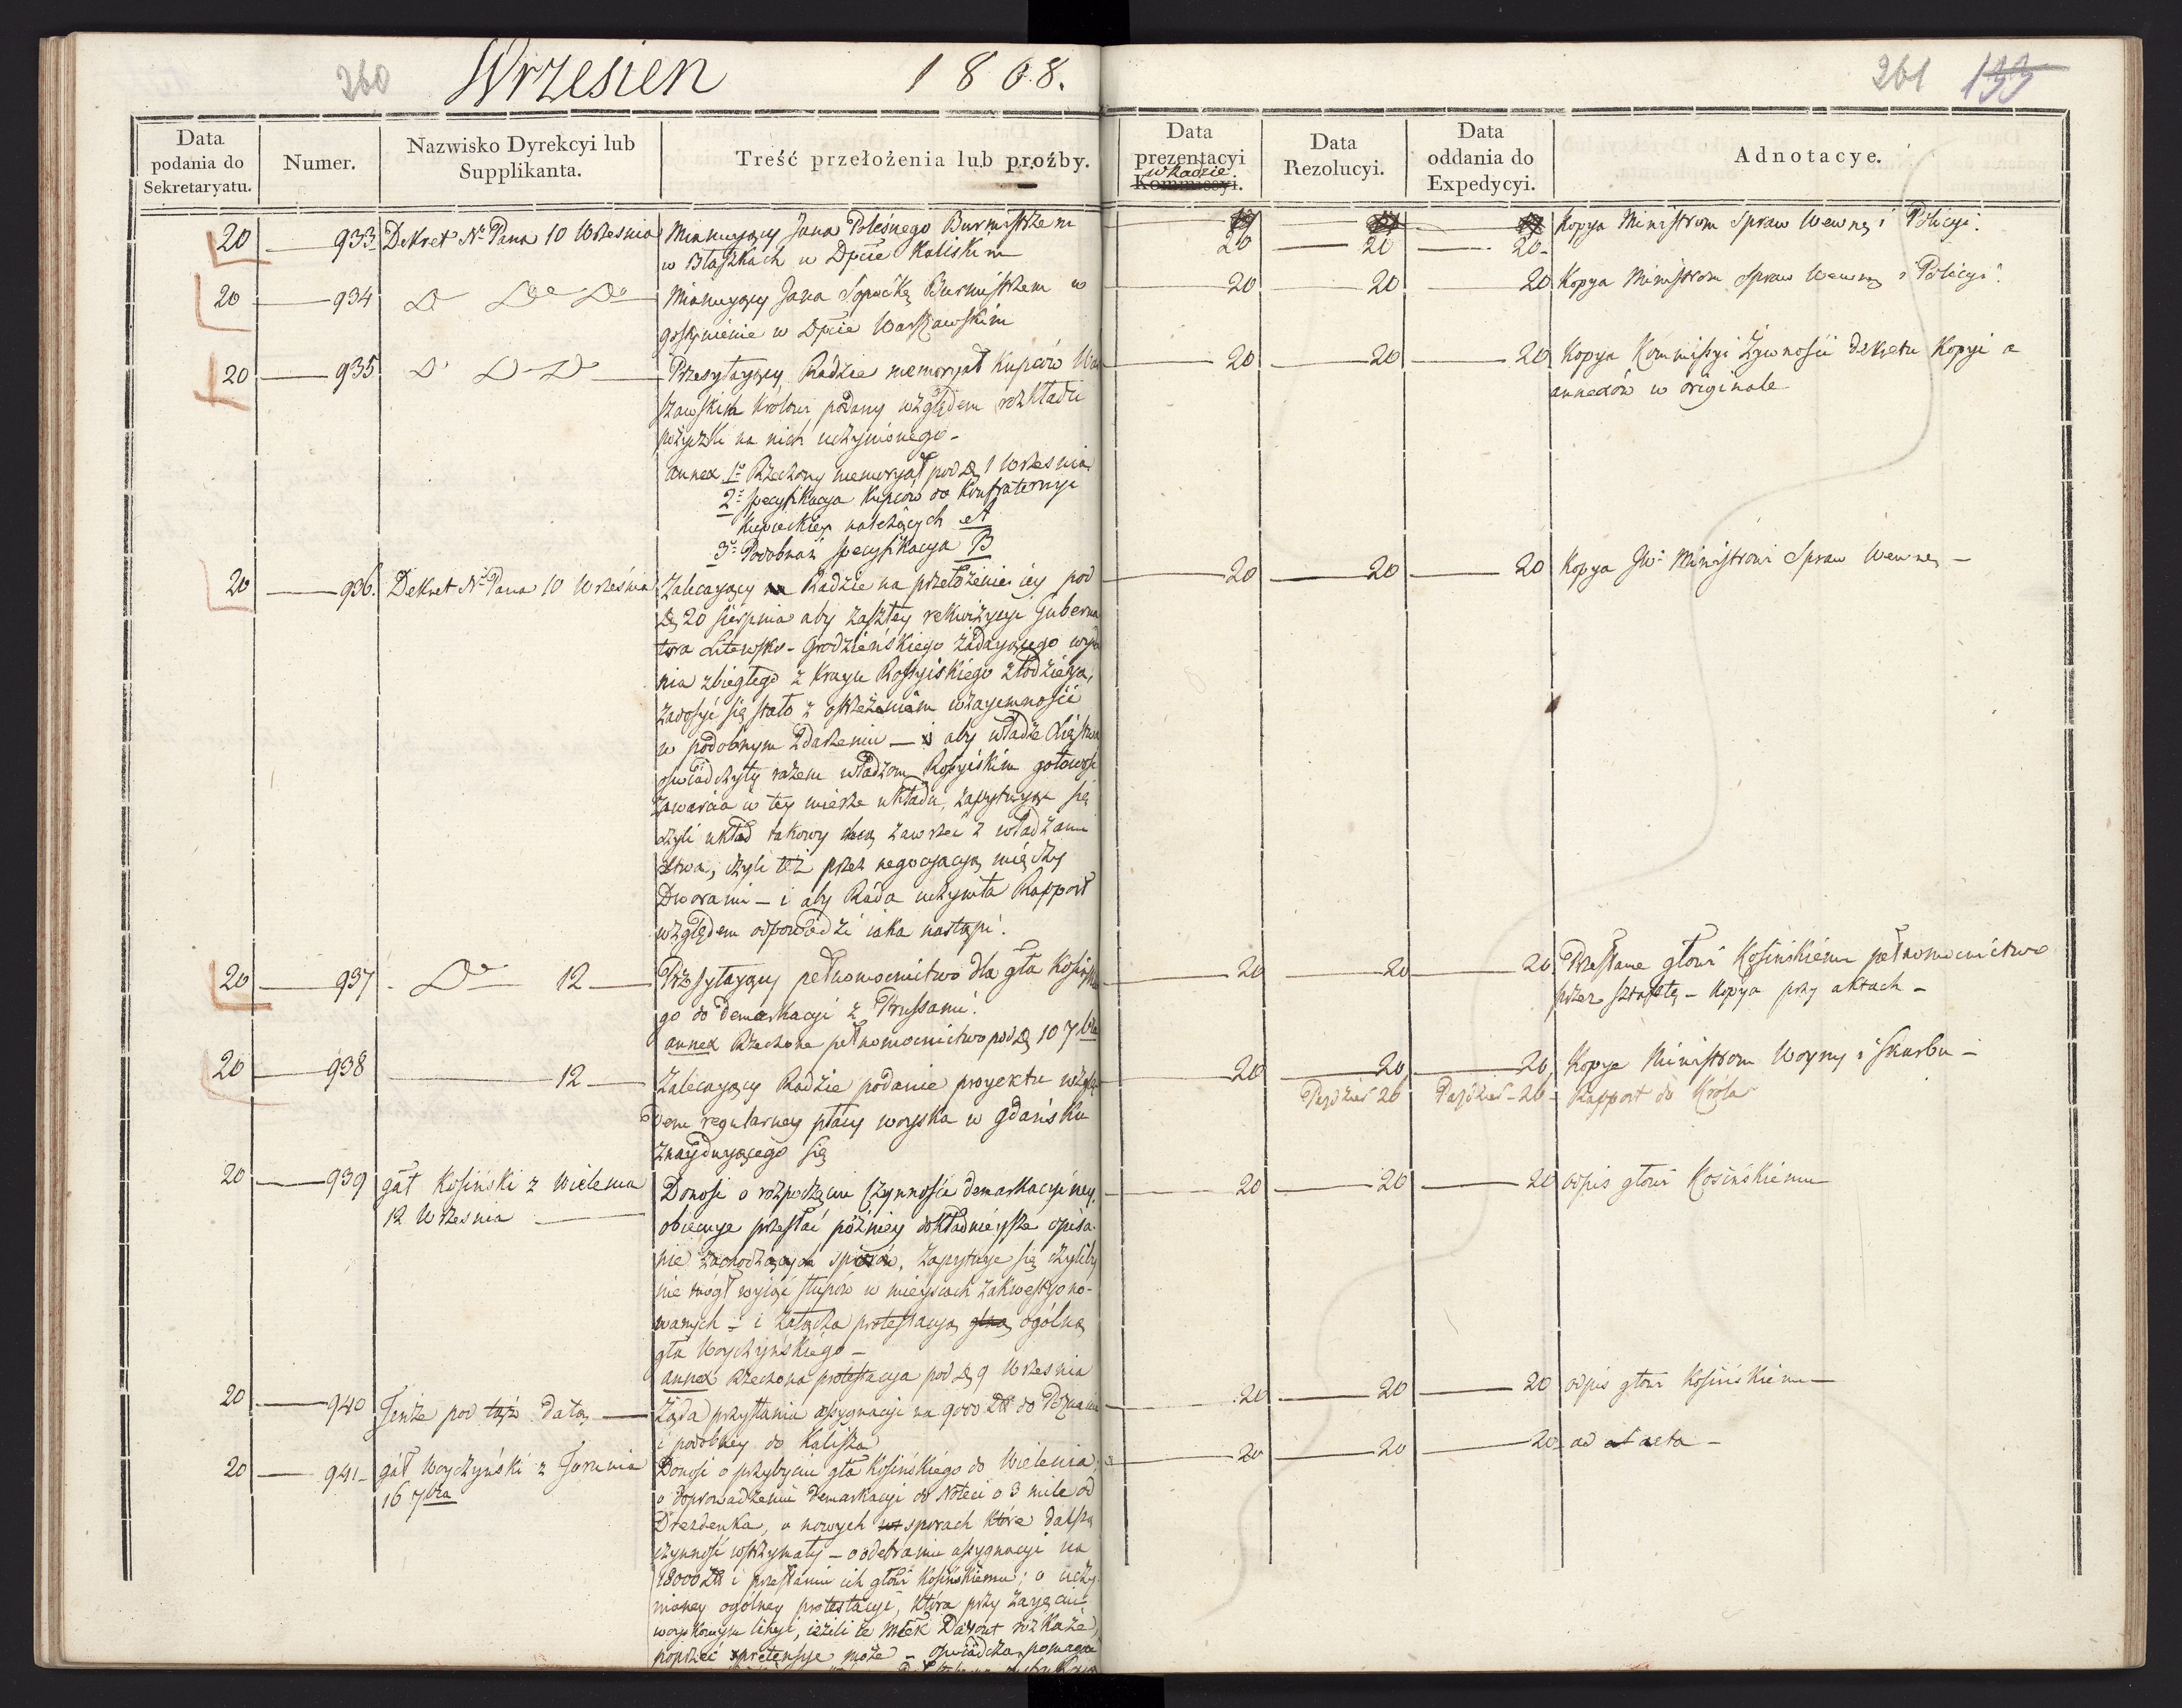 260 Wrzesien 1808.
261 133
Data podania do Sekretaryatu.
Numer.
Nazwisko Dyrekcyi lub Supplikanta.
Treść przełożenia lub proźby.
Data prezentacyi Kommissyi. w Radzie
Data Rezolucyi.
Data oddania do Expedycyi.
Adnotacye.
20 933 Dekret N. Pana 10 Wrzesnia
Mianuyący Jana Poleśnego Burmistrzem
w Błaszkach w Dpcie Kaliskim
20 20 20 Kopya Ministrom Spraw Wewnę i Policyi.
20 934 Do Do Do
Mianuyący Jana Sopoćkę Burmistrzem w
Gostyninie w Dpcie Warszawskim
20 20 20 Kopya Ministrom Spraw Wewnę i Policyi.
20 935 D D D
Przesyłaiący Radzie memoryał Kupców War
szawskim Krolowi podany względem rozkładu
pożyczki na nich uczynionego -
annex 1o Rzeczony memoryał pod D 1 Wrzesnia
2o Specyfikacya Kupców do Konfraternyi
kupieckiey należących A
3o Podobnaż specyfikacya B
20 20 20 Kopya Kommissyi Żywności dekretu Kopyi a
annexów w originale
20 936. Dekret N. Pana 10 Wrzesnia
Zalecaiący Radzie na przełożenie iey pod
D 20 Sierpnia aby zaszłey rekwizycyi Guberna
tora Litewsko-Grodzieńskiego żądaiącego wyda
nia zbiegłego z kraju Rossyiskiego złodzieia,
zadosyć się stało z ostrzeżeniem wzaiemności
w podobnym zdarzeniu — i aby władze Xięstwa
oświadczyły razem władzom Rossyiskim gotowość
zawarcia w tey mierze układu, zapytuiąc się
czyli układ takowy chcą zawrzeć z władzami
Xtwa, czyli też przez negocyacyą między
Dworami - i aby Rada uczyniła Rapport
względem odpowiedzi iaka nastąpi.
20 20 20 Kopya JW. Ministrowi Spraw Wewnę -
20 937 - Do 12
Przesyłaiący pełnomocnictwo dla gła Kosińskie
go do demarkacyi z Prussami.
annex Rzeczone pełnomocnictwo pod D 10 7bra
20 20 20 Przesłane głowi Kosińskiemu pełnomocnictwo
przez sztafetę - Kopya przy aktach -
20 938 12
Zalecaiący Radzie podanie proyektu wzglę
dem regularney płacy woyska w Gdańsku
znayduiącego się
20 20 20 Kopye Ministrom Woyny i Skarbu -
Paździer 26 Paździer - 26 - Rapport do Króla
20 939 gał Kosiński z Wielenia
12 Wrzesnia
Donosi o rozpoczęciu czynności demarkacyiney.
obiecuje przesłać pózniey dokładnieysze opisa-
nie zachodzących sporów, zapytuje się czyliby
nie mógł wyciąć słupów w mieyscach zakwestyono-
wanych - i załącza protestacyą ogólną
gła Woyczyńskiego -
annex Rzeczona protestacya pod D 9 Wrzesnia
20 20 20 odpis głowi Kosińskiemu
20 940 Tenże pod tąż datą
Żąda przysłania assygnacyi na 9000 Zł do Poznania
i podobney do Kalisza
20 20 20 odpis głowi Kosińskiemu
20 941 - gał Woyczyński z Torunia
16 7bra
Donosi o przybyciu gła Kosińskiego do Wielenia;
o doprowadzeniu demarkacyi do Noteci o 3 mile od
Drezdenka, o nowych sporach które dalszą
czynność wstrzymały - o odebraniu assygnacyi na
18000 Zł i przesłaniu ich głowi Kosińskiemu; o uczy-
nioney ogólney protestacyi, która przy zaięciu
woyskowym linyi, ieżeli ie Młek Davout rozkaże,
poprzeć pretensye może - oświadcza
20 20 20 ad acta -